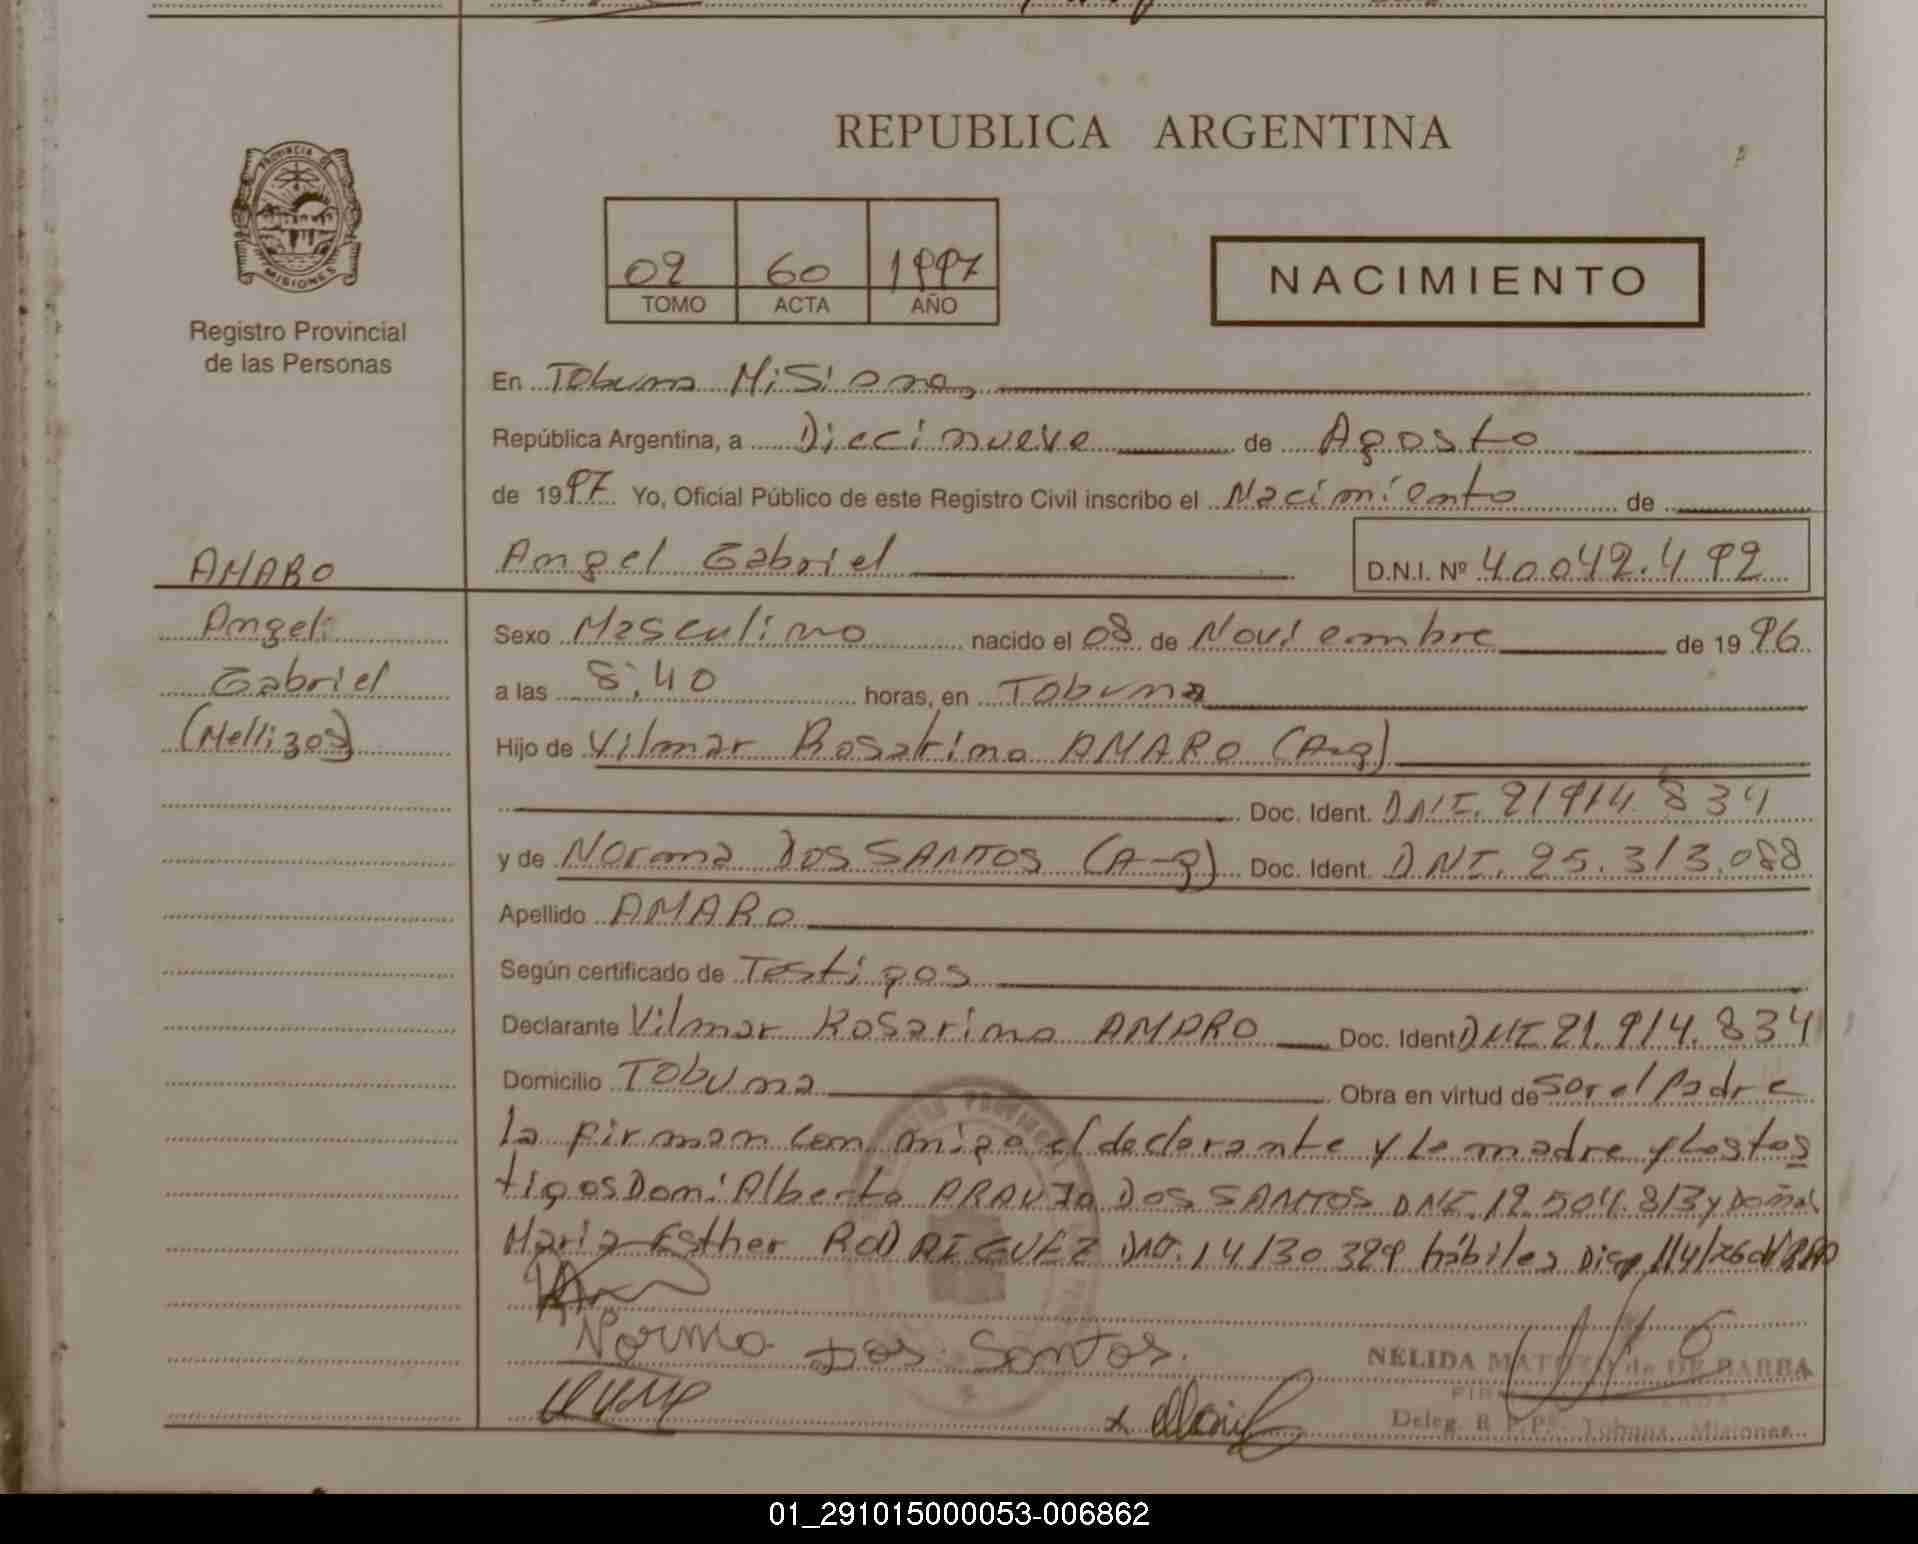 REPUBLICA ARGENTINA
PROVINCIA DE
MISIONES
Registro Provincial
de las Personas
02 60 1997
TOMO ACTA AÑO
NACIMIENTO
En Tobuna Misiones
República Argentina, a Diecinueve de Agosto
de 1997 Yo, Oficial Público de este Registro Civil inscribo el Nacimiento de
AMARO
Angel
Gabriel
(Mellizos)
Angel Gabriel D.N.I. Nº 40042.492
Sexo Masculino nacido el 08 de Noviembre de 1996
a las 8:40 horas, en Tobuna
Hijo de Vilmar Rosarino AMARO (Arg)
Doc. Ident. DNI. 21914.834
y de Norma DOS SANTOS (Arg) Doc. Ident. DNI. 25.313.088
Apellido AMARO
Según certificado de Testigos
Declarante Vilmar Rosarino AMARO Doc. Ident DNI 21.914.834
Domicilio Tobuna Obra en virtud de Ser el Padre
la firman conmigo el declarante y la madre y Los tes
tigos Don: Alberto ARAUJO DOS SANTOS DNI. 12.504.813 y Doña:
Maria Esther RODRIGUEZ DNI. 14130 329 hábiles
Norma Dos Santos.
NELIDA MATOZO de DE BARBA
Deleg. R.P.P. - Tobuna, Misiones
01_291015000053-006862